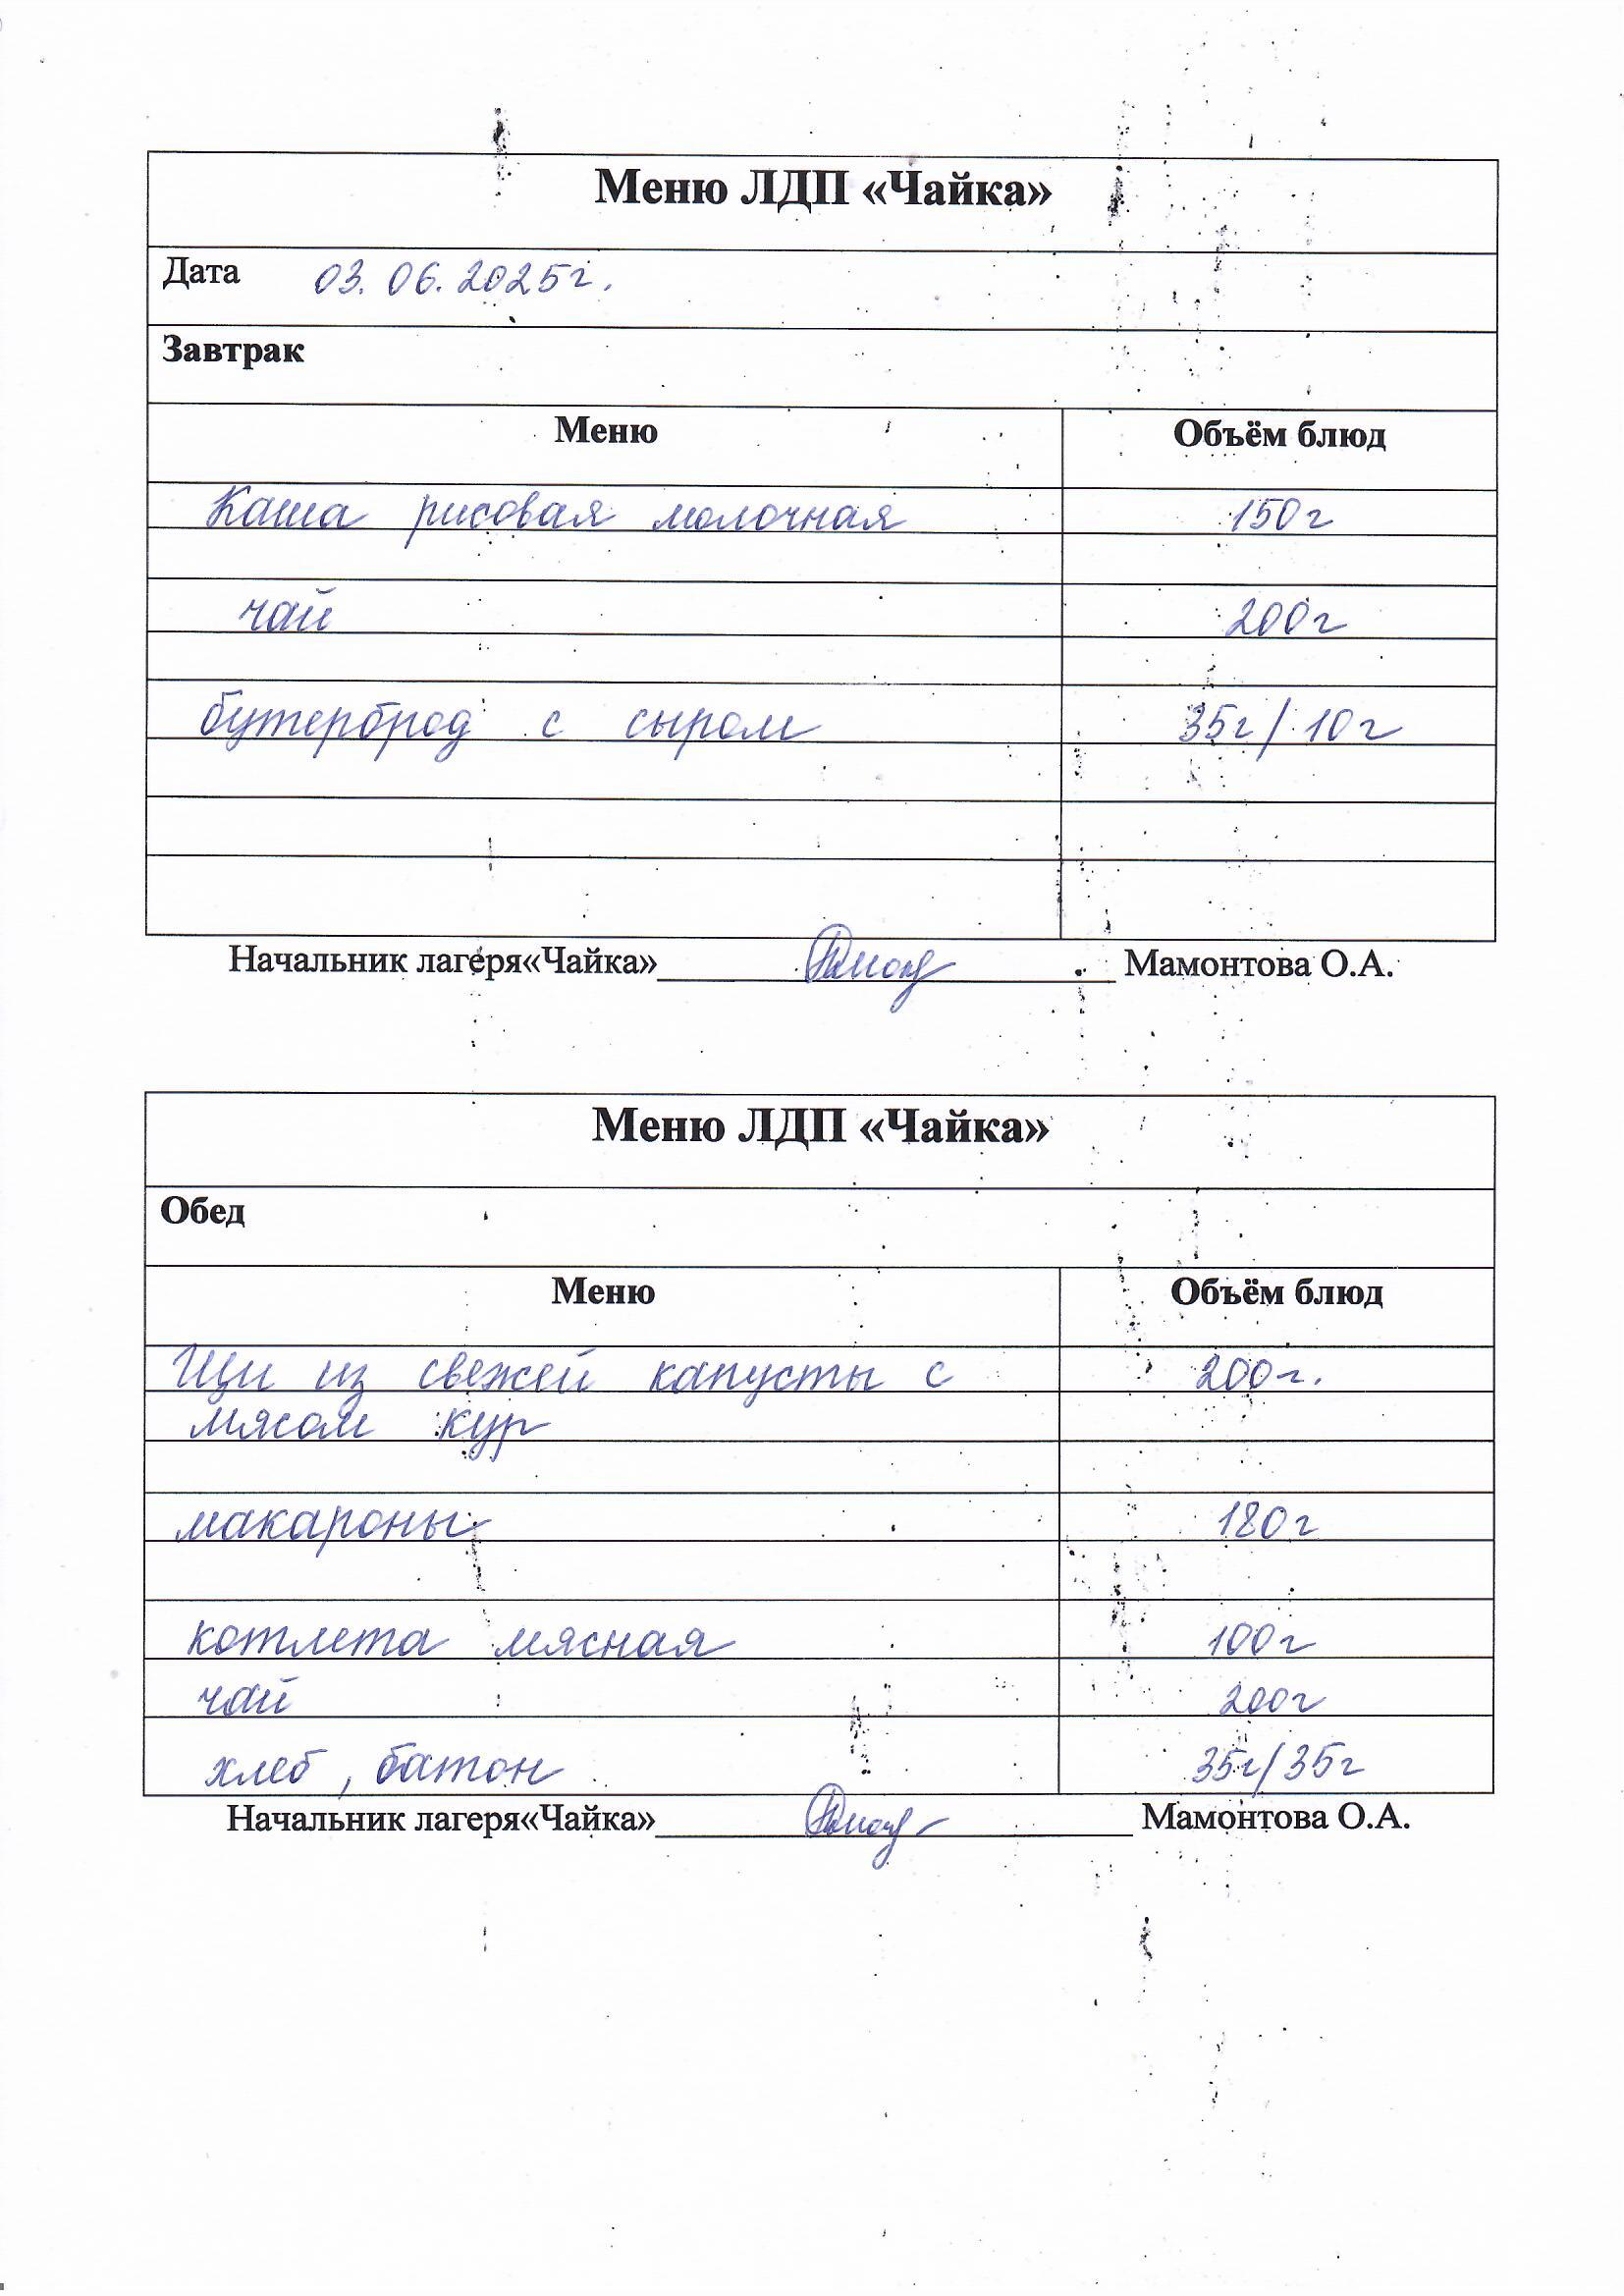 Меню ЛДП «Чайка»
Дата 03.06.2025г.
Завтрак
Меню Объём блюд
Каша рисовая молочная 150г
чай 200г
бутерброд с сыром 35г/10г
Начальник лагеря«Чайка» Мамонтова О.А.
Меню ЛДП «Чайка»
Обед
Меню Объём блюд
Щи из свежей капусты с 200г.
мясом кур
макароны 180г
котлета мясная 100г
чай 200г
хлеб, батон 35г/35г
Начальник лагеря«Чайка» Мамонтова О.А.